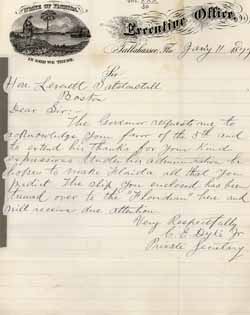 STATE OF FLORIDA
IN GOD WE TRUST.
Executive Office,
Tallahassee, Fla Jany 11 187
Sir
Hon. Leverett Saltonstall
Boston
Dear Sir:-
The Governor requests me to
acknowledge your favor of the 5th and
to extend his thanks for your kind
expressions. Under his administration he
hopes to make Florida all that you
predict. The slip you enclosed has been
turned over to the "Floridian" here and
will receive due attention.
Very Respectfully
C. E. Dyke Jr
Private Secretary